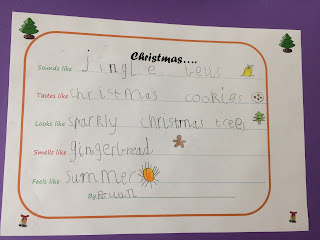 Christmas....
Sounds like jingle bells
Tastes like christmas cookies
Looks like sparkly christmas trees
Smells like gingerbread
Feels like summer
By